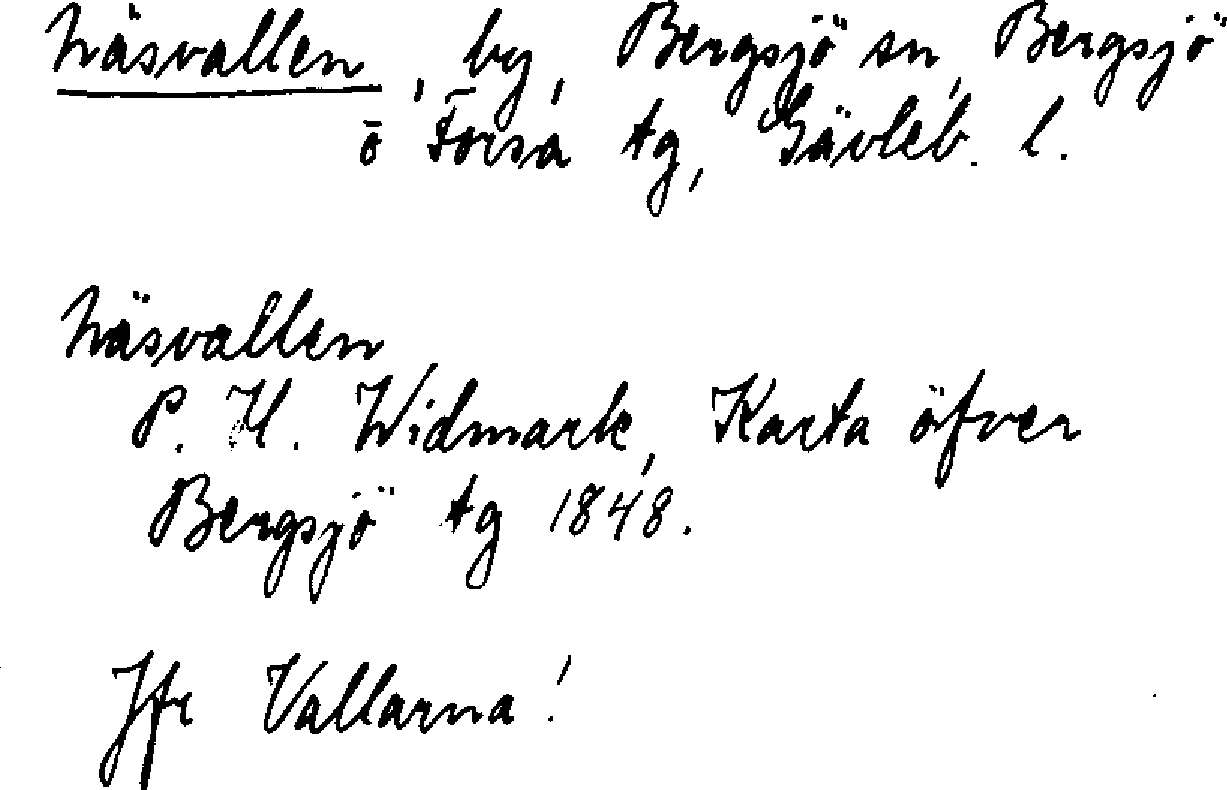 Näsvallen, by, Bergsjö sn, Bergsjö
o Forsa tg, Gävleb. l.
Näsvallen
P. H. Widmark, Karta öfver
Bergsjö tg 1848.
Jfr Vallarna!